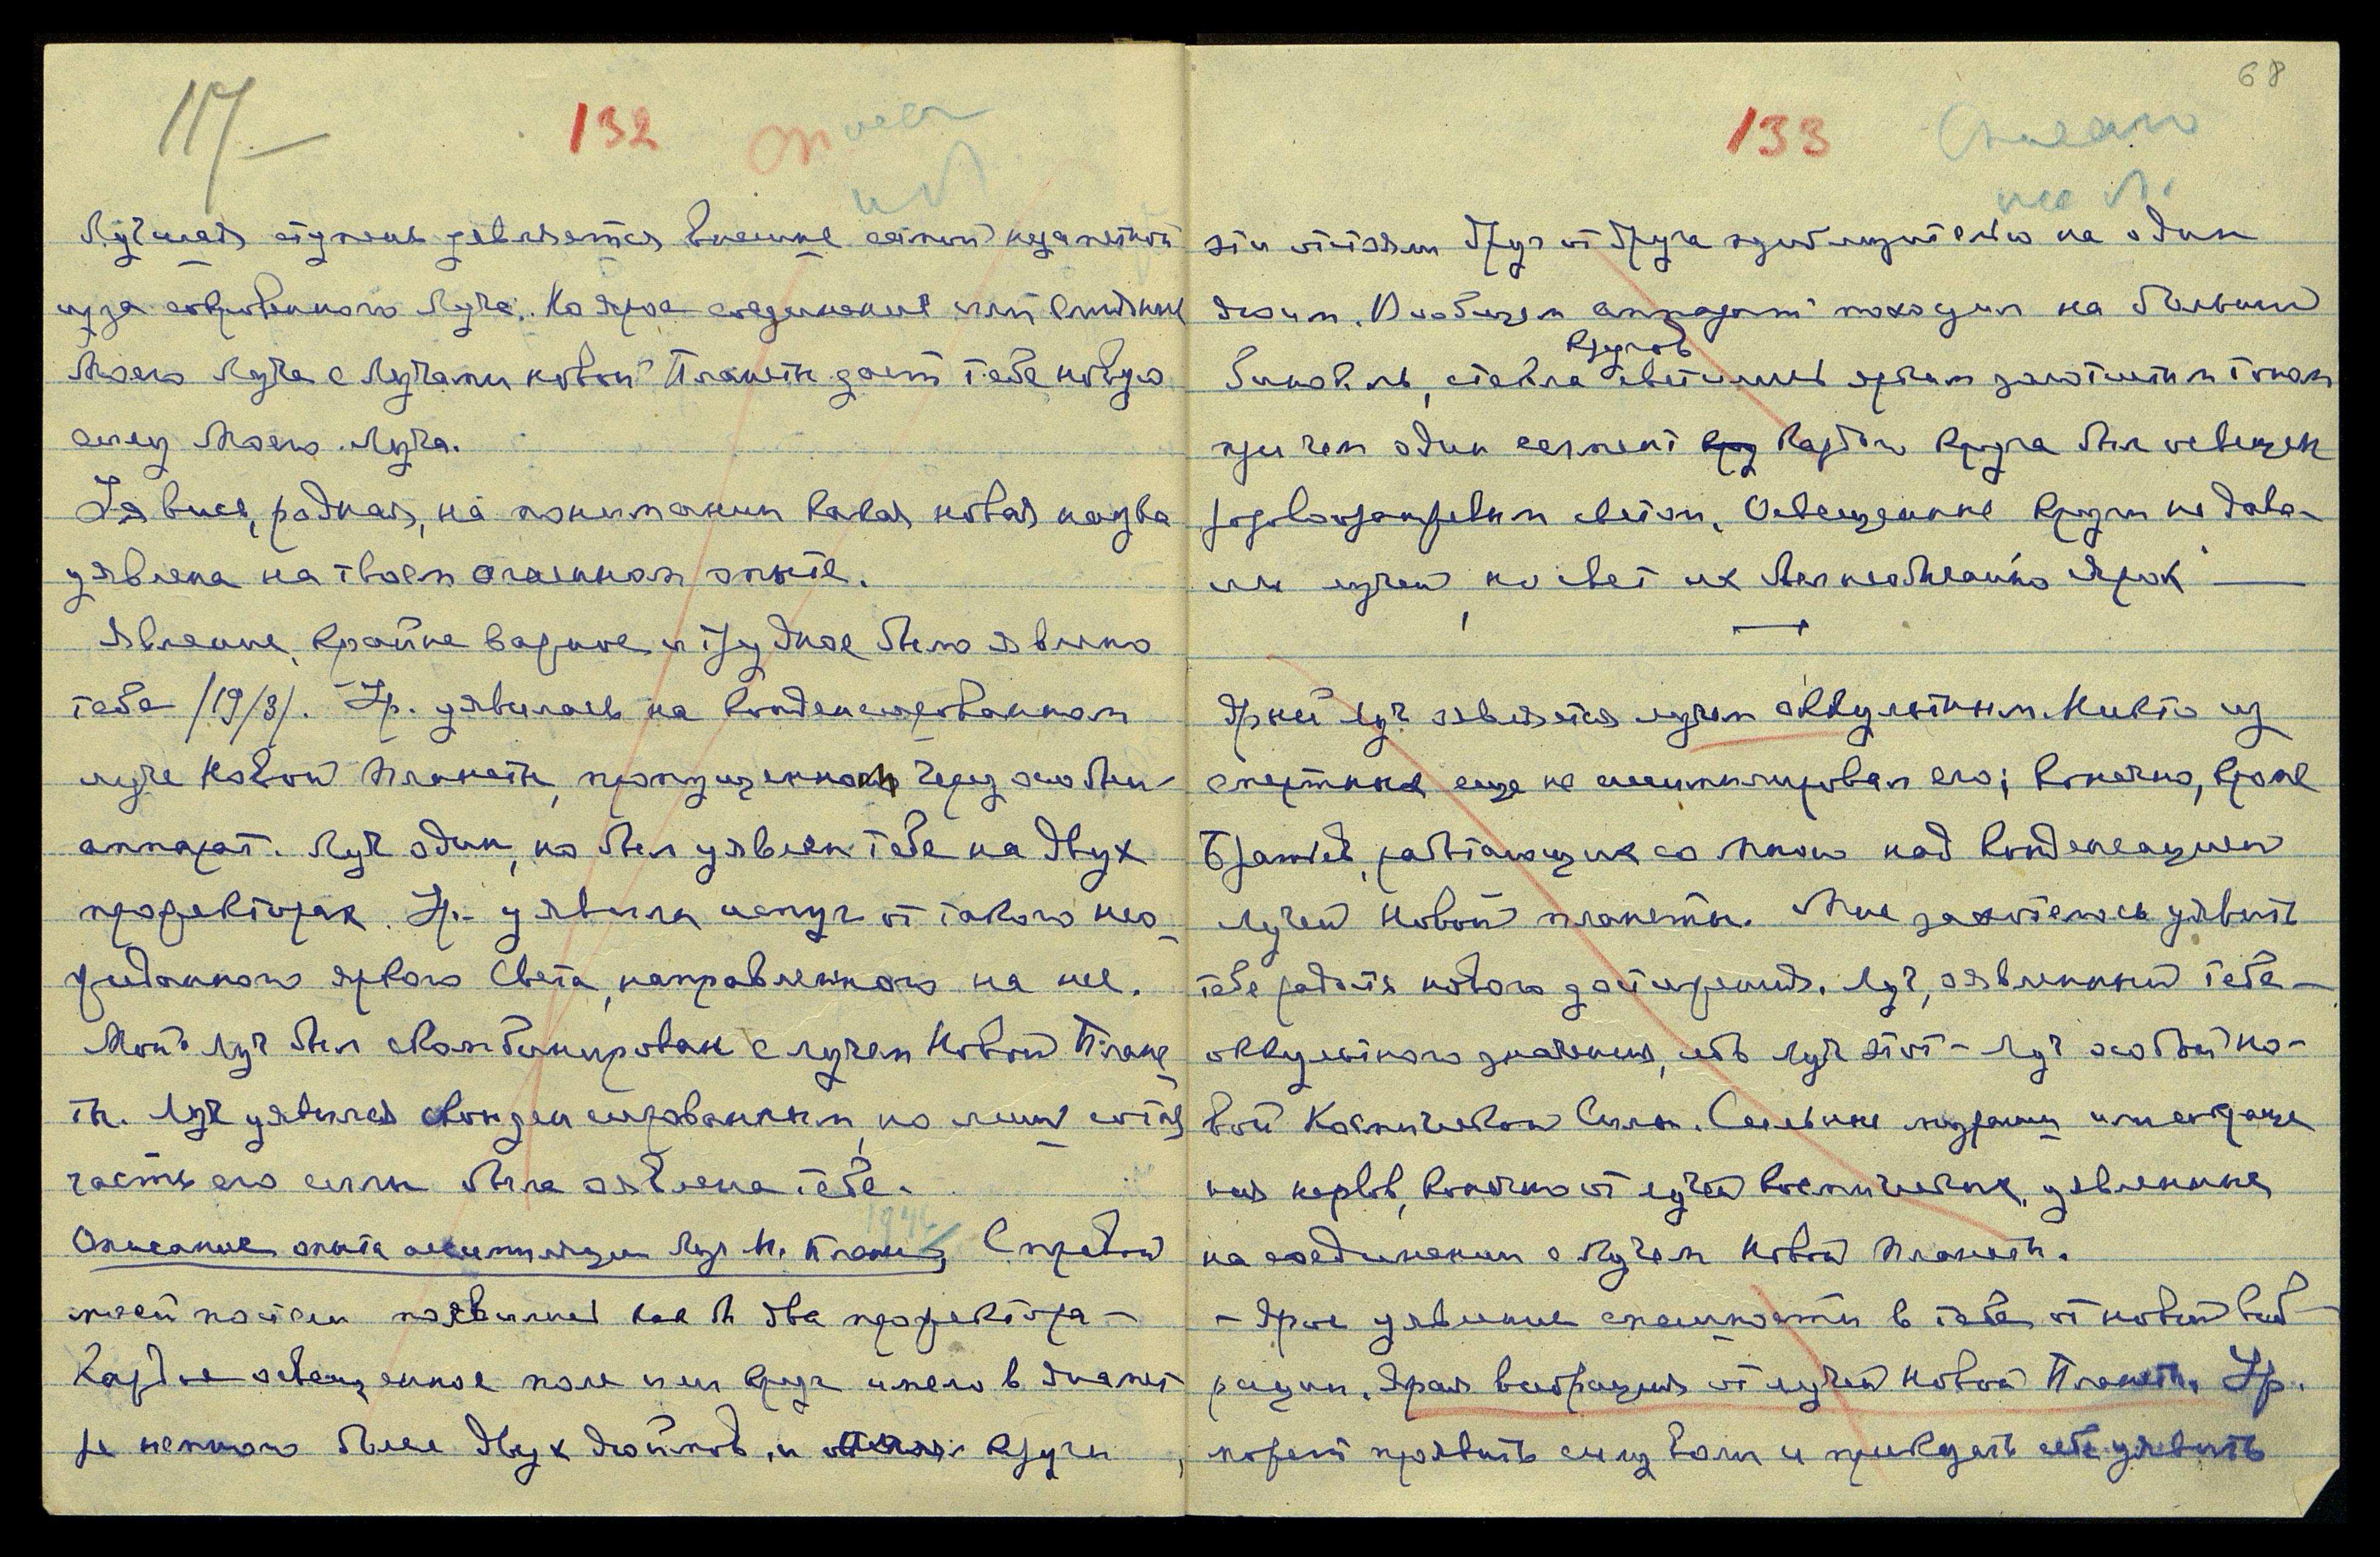 117
132
Лучшая ступень уявляется внешне самой незаметной
из за сокровенного Луча. Но ярое соединение или слияние
Моего Луча с Лучами новой Планеты дает тебе новую
силу Моего Луча.
родная, на понимании какая новая наука
уявлена на твоем огненном опыте.
Явление, крайне важное и трудное было явлено
тебе /19/3/. Ур. уявилась на конденсированном
луче Новой Планеты, пропущенном через особый
аппарат. Луч один, но был уявлен тебе на двух
прожекторах. Ур. уявила испуг от такого нео-
жиданного яркого Света, направленного на нее.
Мой Луч был скомбинирован с лучом Новой Плане
ты. Луч уявился сконденсированным, но лишь сотая
часть его силы была оявлена тебе.
1944
Описание опыта ассимиляции Луч. Н. Планеты, Справой
моей постели появились как бы два прожектора —
Каждое освещенное поле или круг имело в диамет
ре немного более двух дюймов, и круги
68
133
Списано
эти отстояли друг от друга приблизительно на один
дюйм. В общем аппарат походил на большой
кругов
бинокль, стекла светились ярким золотистым тоном
при чем один сегмент каждого круга был освещен
розовооранжевым светом. Освещенные круги не дава-
ли лучей, но свет их был необычайно ярок —
Ярый луч является лучом оккультным. Никто из
смертных еще не ассимилировал его; конечно, кроме
Братьев, работающих со Мною над конденсацией
лучей Новой планеты. Мне захотелось уявить
тебе радость нового достижения. Луч, оявленный тебе —
оккультного значения, ибо луч этот — луч особый но-
вой Космической Силы. Сильные или сокраще
ния нервов, конечно от лучей космических, уявленных
на соединении с Лучом Новой Планеты.
— Ярое уявление спешности в тебе от новой виб
рации. Ярая вибрация от лучей Новой Планеты. Ур.
может проявить силу воли и приказать себе уявить